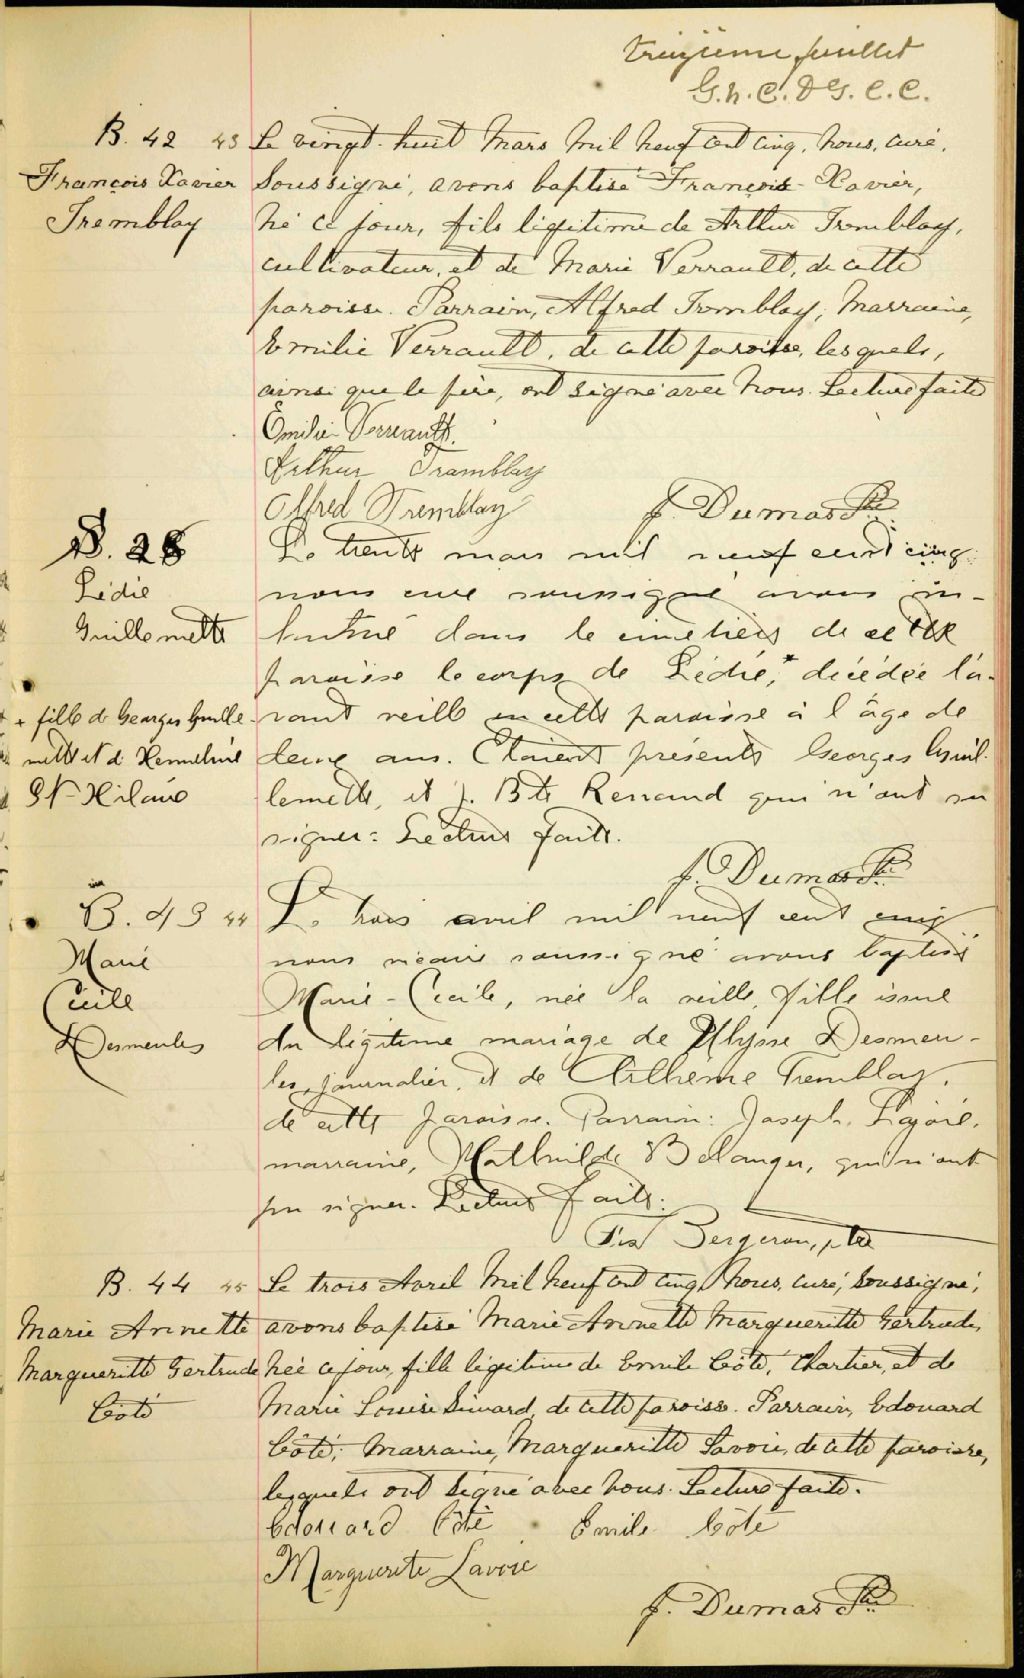 treizième feuillet
G. h. C. D G. C. C.
B. 42 43
François Xavier
Tremblay
Le vingt-huit Mars Mil neuf cent cinq, nous, curé,
soussigné, avons baptisé François-Xavier,
né ce jour, fils légitime de Arthur Tremblay,
cultivateur, et de Marie Verrault, de cette
paroisse. Parrain, Alfred Tremblay, Marraine,
Emilie Verrault, de cette paroisse, lesquels,
ainsi que le père, ont signé avec nous. Lecture faite
Emilie Verreault.
Arthur Tramblay
Alfred Tremblay
J. Dumas Ptre
S. 28
Lédie
Guillemette
+ fille de Georges Guille-
mette et de
St-Hilaire
Le trente mars mil neuf cent cinq
nous curé soussigné avons in-
humé dans le cimetière de cette
paroisse le corps de Lédie,* décédée l'a-
vant veille en cette paroisse à l'âge de
deux ans. Etaient présents Georges Guil-
lemette, et J. Bte Renaud qui n'ont su
signer. Lecture faite.
J. Dumas Ptre
B. 43 44
Marie
Cécile
Desmeules
Le trois avril mil neuf cent cinq
nous vicaire soussigné avons baptisé
Marie-Cécile, née la veille, fille issue
du légitime mariage de Ulysse Desmeu-
les, journalier, et de Arthémise Tremblay,
de cette paroisse. Parrain: Joseph Lajoie,
marraine, Mathilde Belanger, qui n'ont
pu signer. Lecture faite.
Frs Bergeron, ptre
B. 44 45
Marie Annette
Marguerite Gertrude
Côté
Le trois Avril Mil neuf cent cinq, nous, curé, soussigné,
avons baptisé Marie Annette Marguerite Gertrude,
née ce jour, fille légitime de Emile Côté, Chartier, et de
Marie Louise Simard, de cette paroisse. Parrain, Edouard
Côté; Marraine, Marguerite Savoie, de cette paroisse,
lesquels ont signé avec nous. Lecture faite.
Edouard Côté Emile Côté
Marguerite Lavoie
J. Dumas Ptre